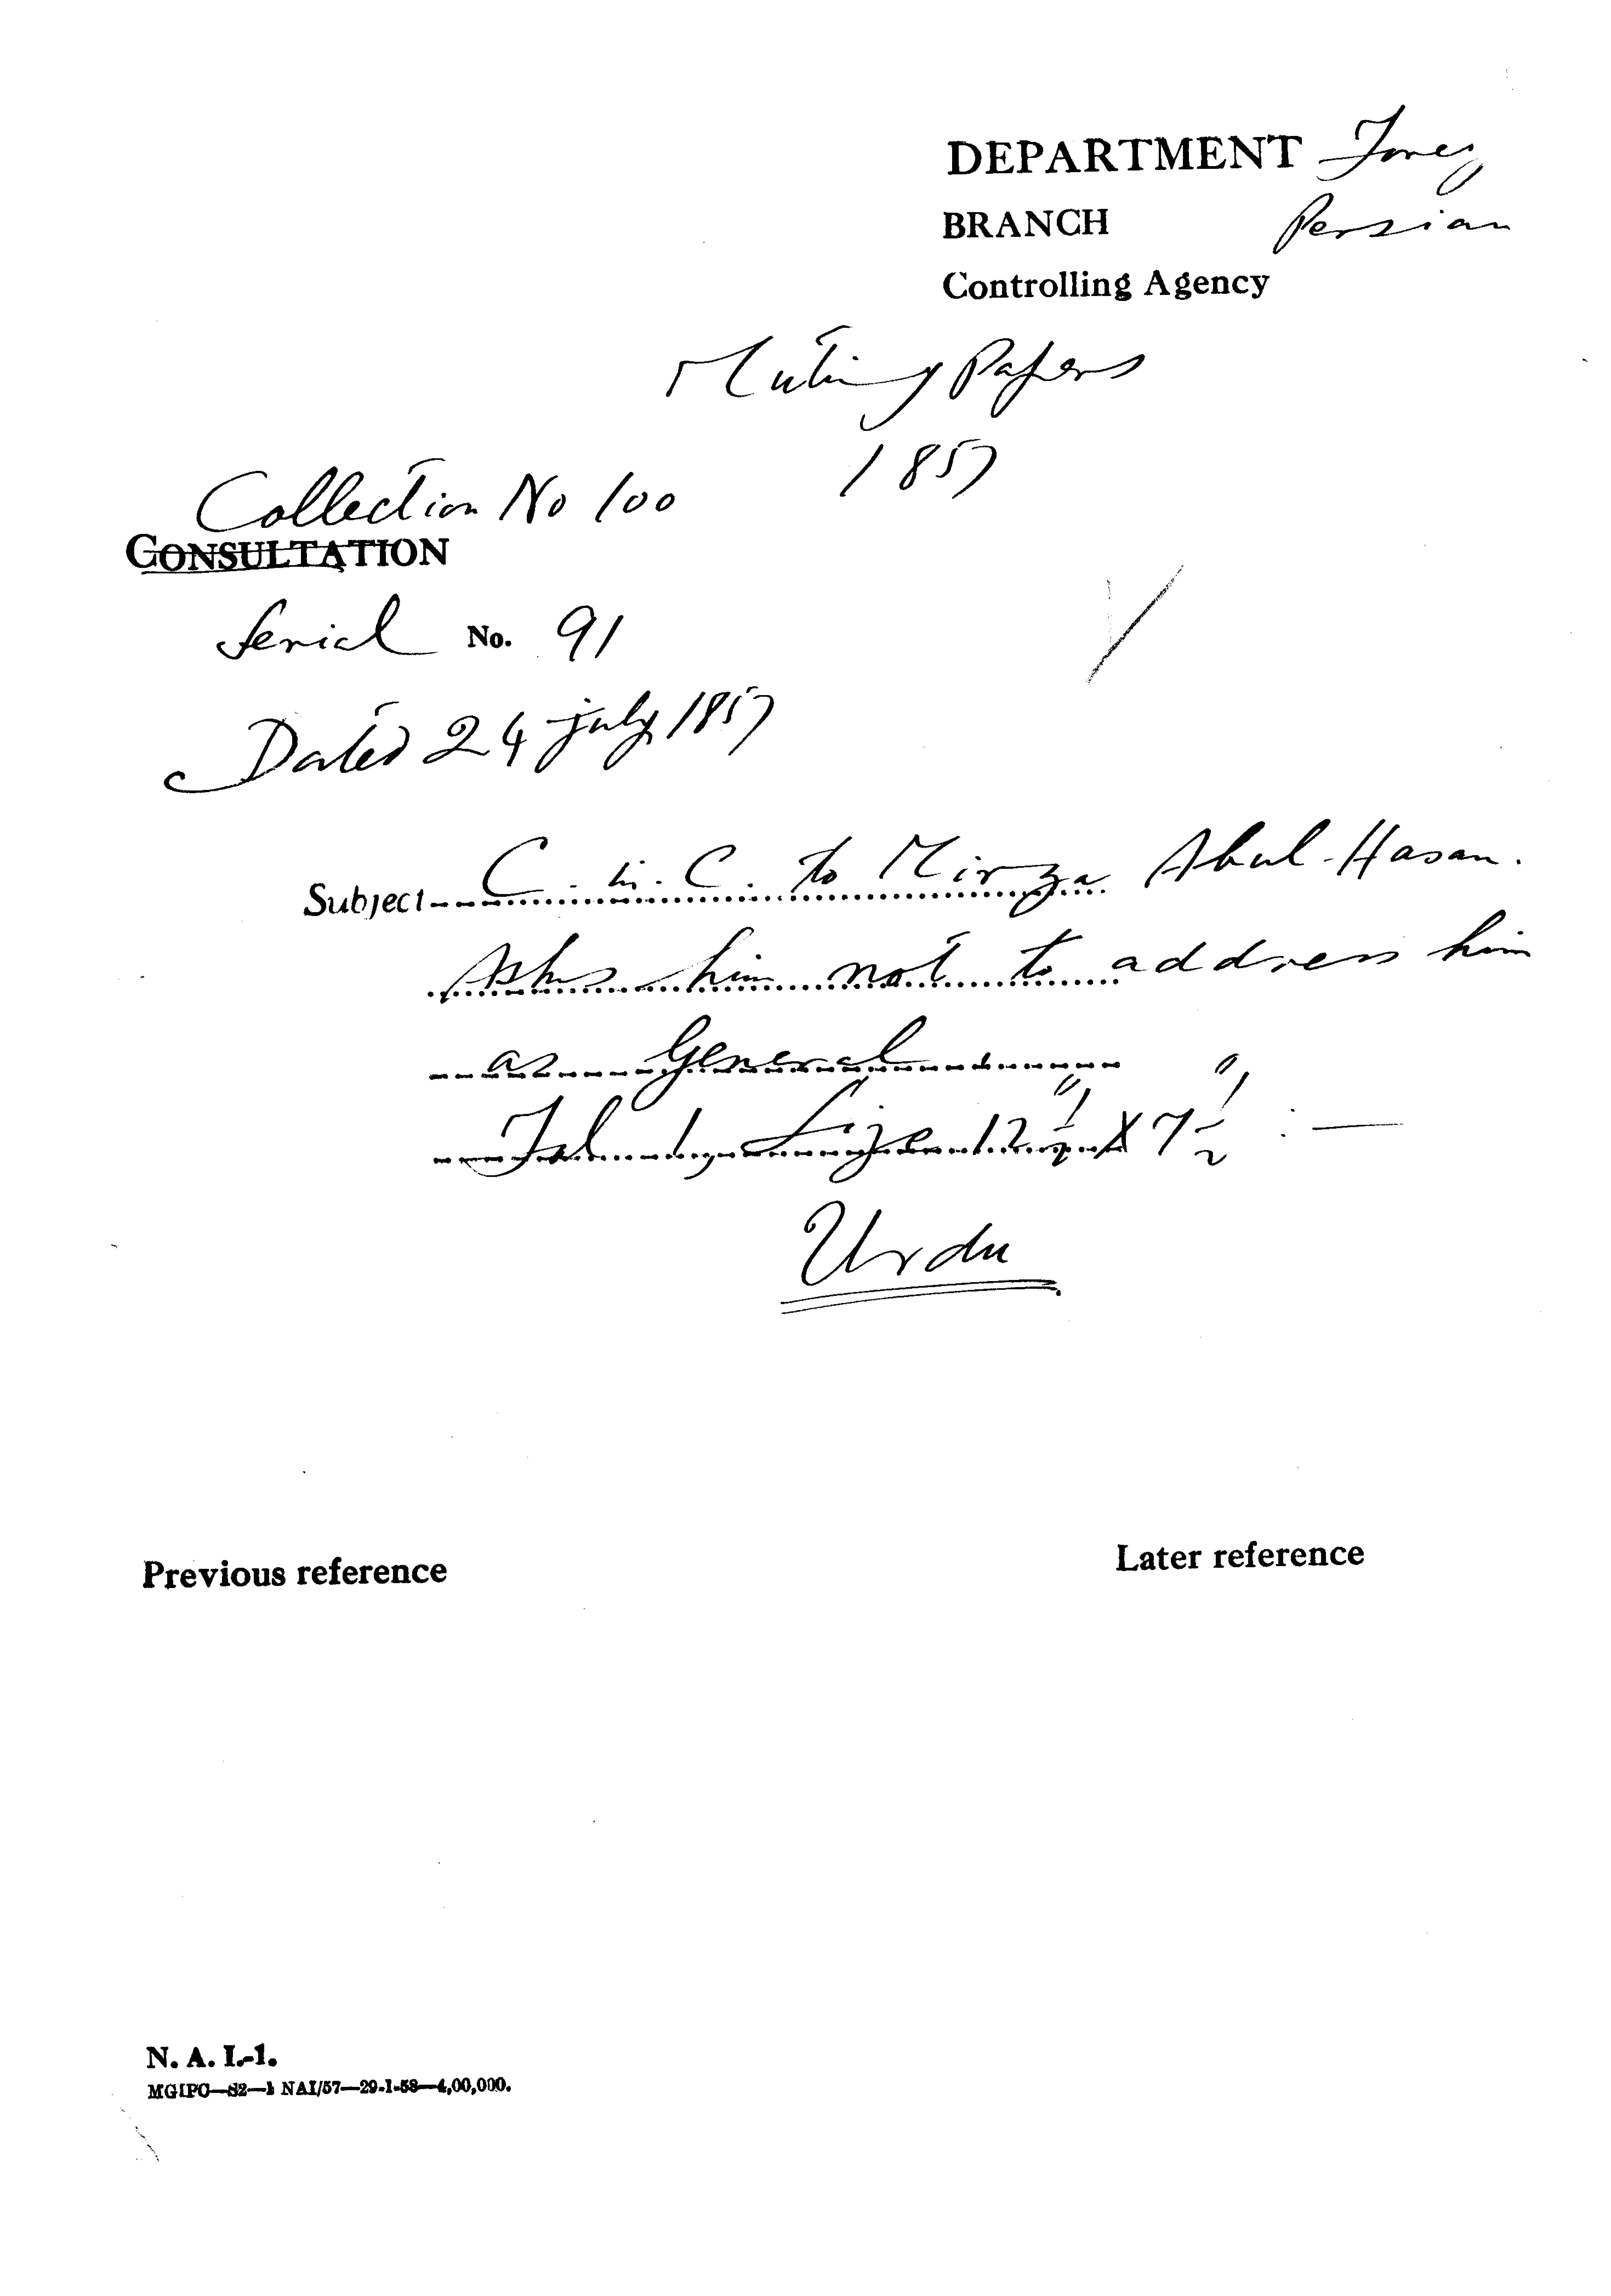 DEPARTMENT
BRANCH Persian
Controlling Agency
Mutiny Papers
1857
Collection No 100
CONSULTATION
Serial No. 91
Dated 24 july 1857
Subject C. in. C. to Mirza Abul-Hasan.
Asks him not to address him
as General
Fol. 1, Size 12 1/2" X 7 1/2" :—
Urdu
Previous reference
Later reference
N. A. I.-1.
MGIPC—S2—1 NAI/57—29-1-58—4,00,000.